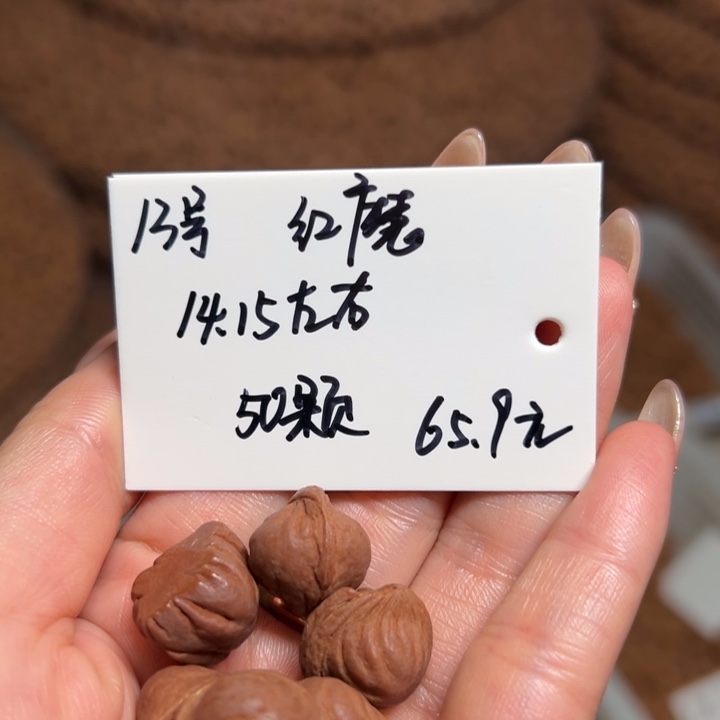 13号 红魔
14.15左右
50颗 65.9元